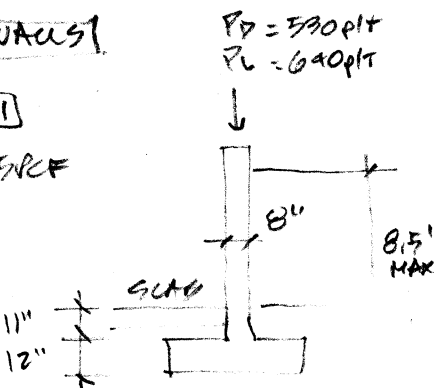 WALLS
P_D = 530 plf
P_L = 640 plf
1
5PCF
8"
8.5'
MAX
SLAB
11"
12"